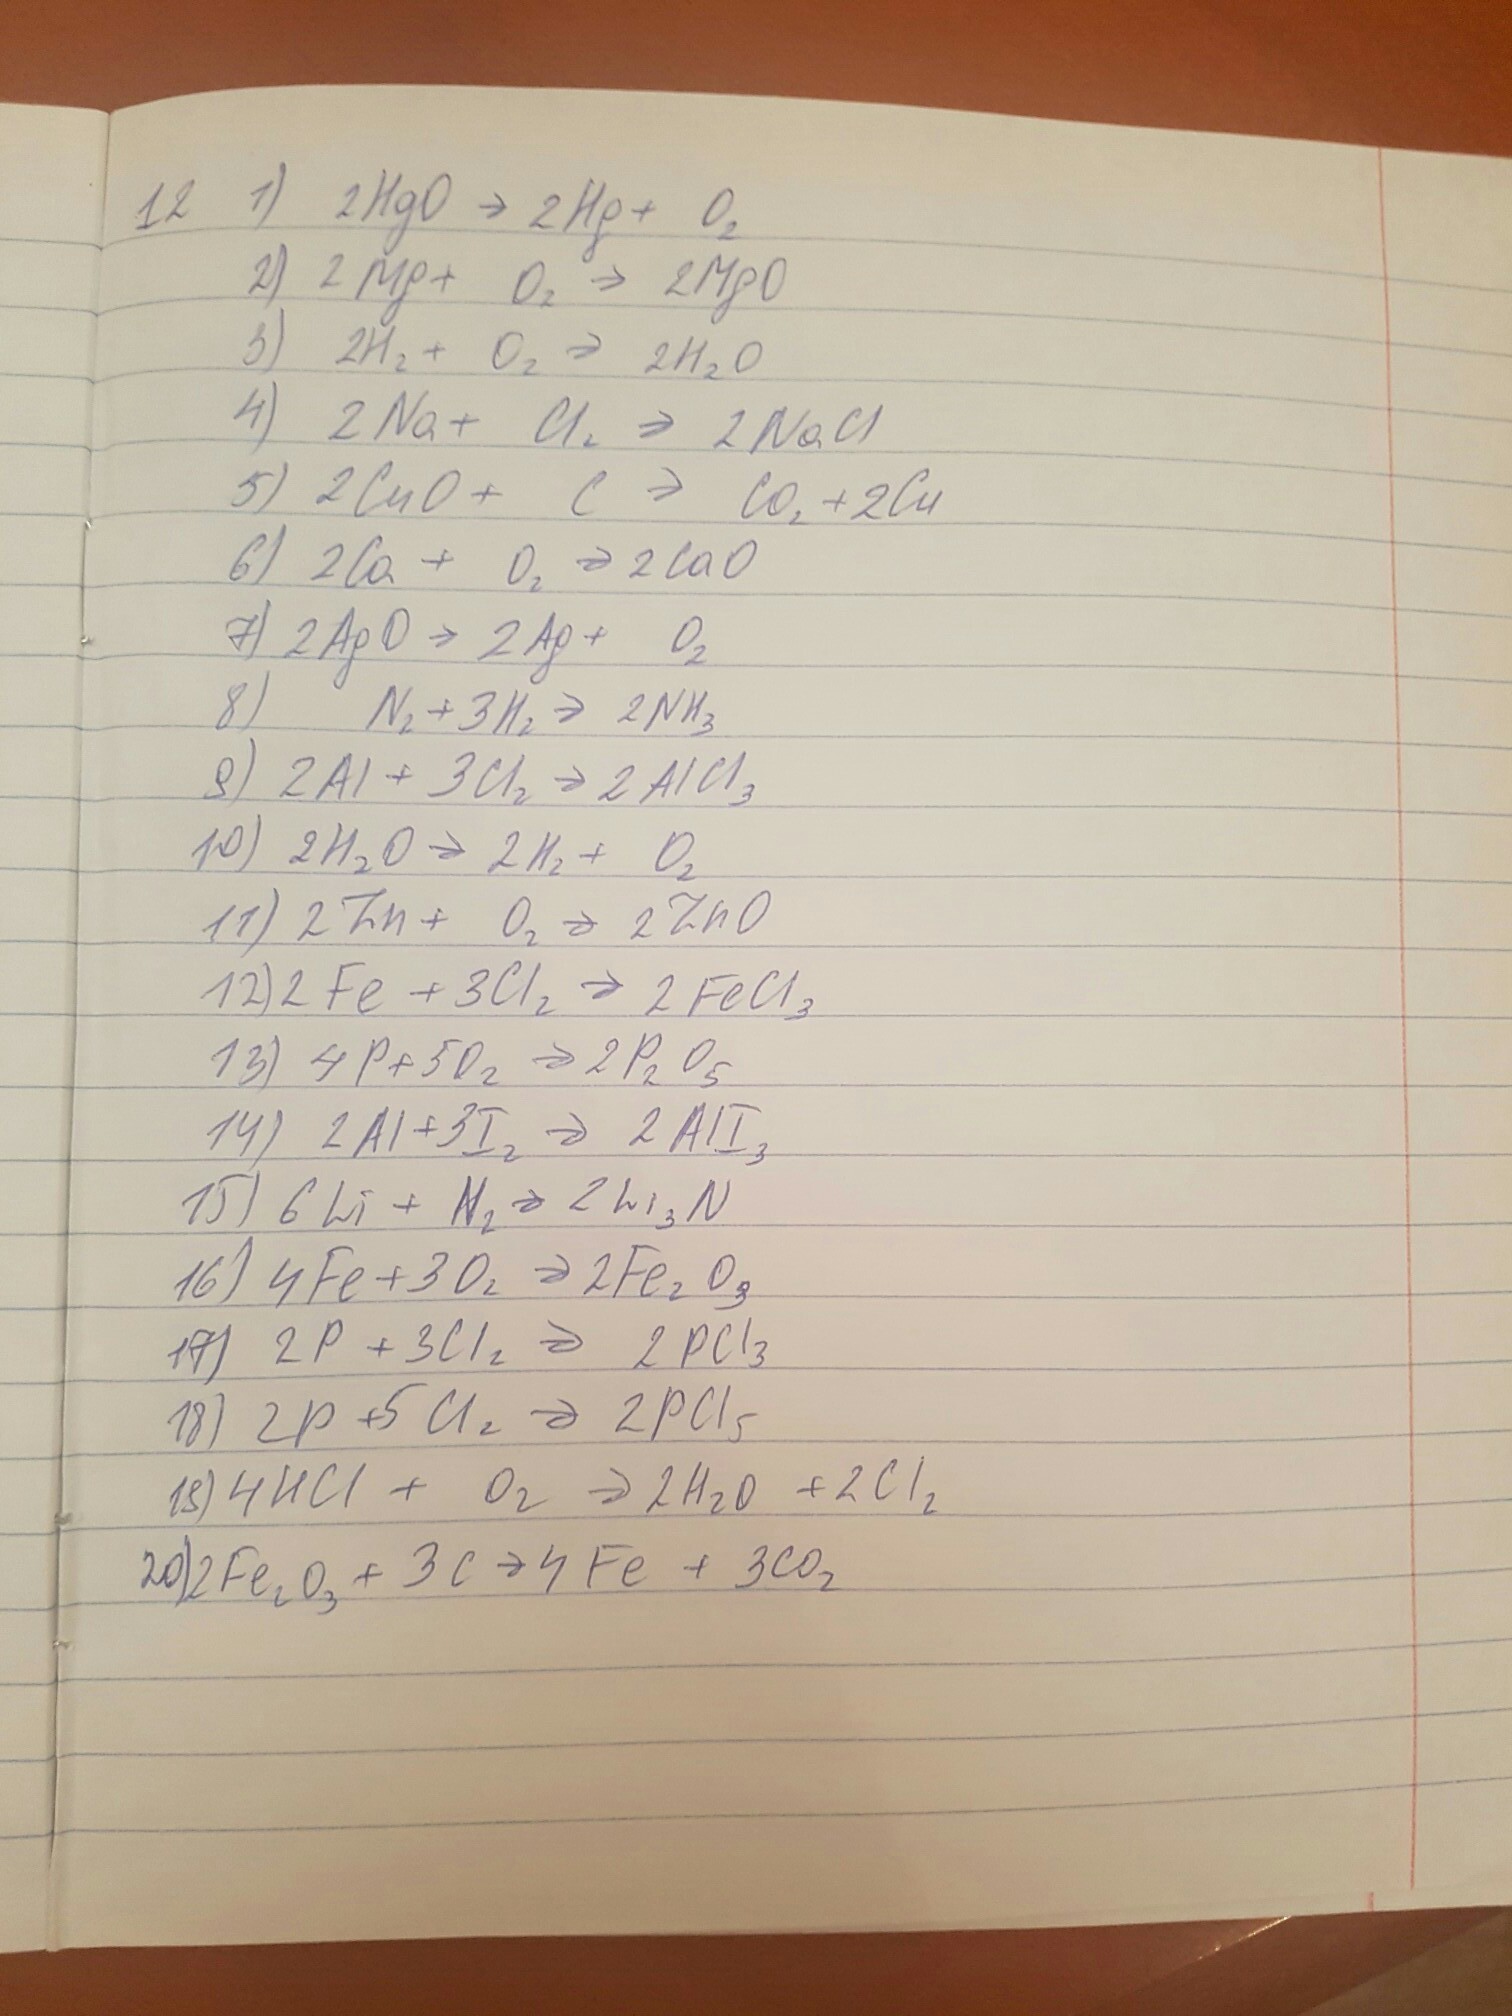 12 1) 2HgO → 2Hg + O₂
2) 2Mg + O₂ → 2MgO
3) 2H₂ + O₂ → 2H₂O
4) 2Na + Cl₂ → 2NaCl
5) 2CuO + C → CO₂ + 2Cu
6) 2Ca + O₂ → 2CaO
7) 2AgO → 2Ag + O₂
8) N₂ + 3H₂ → 2NH₃
9) 2Al + 3Cl₂ → 2AlCl₃
10) 2H₂O → 2H₂ + O₂
11) 2Zn + O₂ → 2ZnO
12) 2Fe + 3Cl₂ → 2FeCl₃
13) 4P + 5O₂ → 2P₂O₅
14) 2Al + 3I₂ → 2AlI₃
15) 6Li + N₂ → 2Li₃N
16) 4Fe + 3O₂ → 2Fe₂O₃
17) 2P + 3Cl₂ → 2PCl₃
18) 2P + 5Cl₂ → 2PCl₅
19) 4HCl + O₂ → 2H₂O + 2Cl₂
20) 2Fe₂O₃ + 3C → 4Fe + 3CO₂